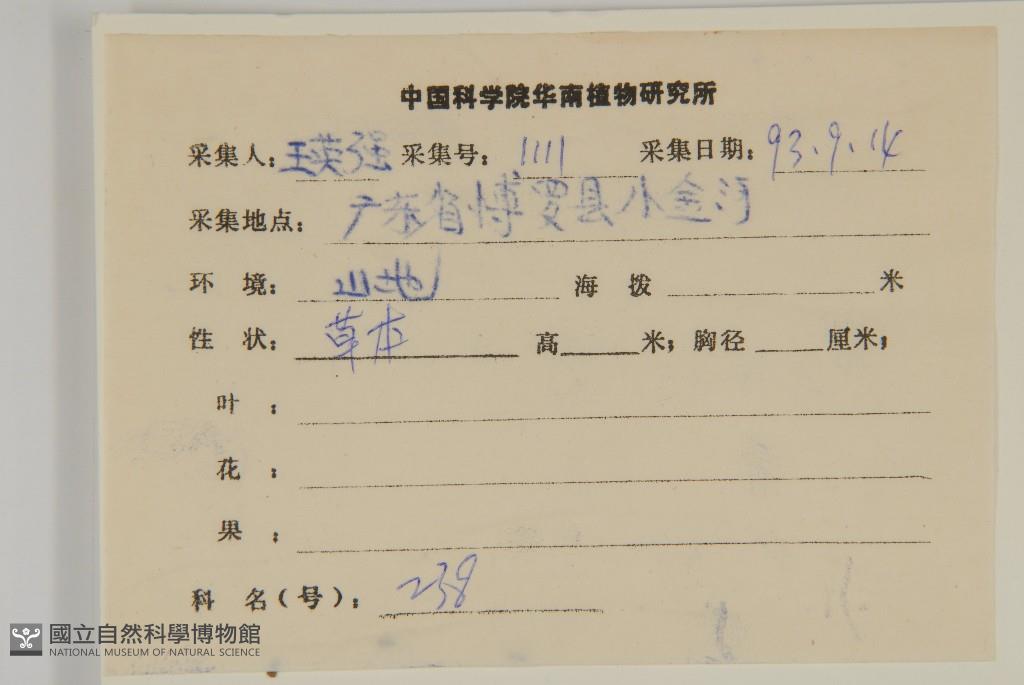 中国科学院华南植物研究所
采集人：王英强 采集号：1111 采集日期：93.9.14
采集地点：广东省博罗县小金河
环 境：山地 海 拨 米
性 状：草本 高 米；胸径 厘米；
叶 ：
花 ：
果 ：
科 名(号)：238
國立自然科學博物館
NATIONAL MUSEUM OF NATURAL SCIENCE